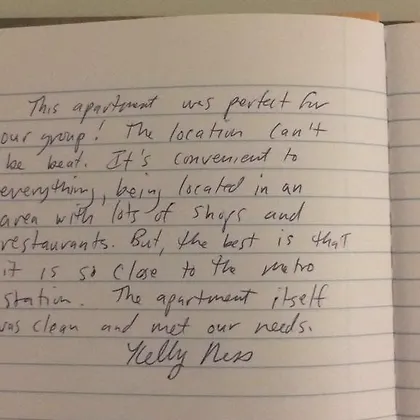 This apartment was perfect for
our group! The location can't
be beat. It's convenient to
everything, being located in an
area with lots of shops and
restaurants. But, the best is that
it is so close to the metro
station. The apartment itself
was clean and met our needs.
Kelly Ness